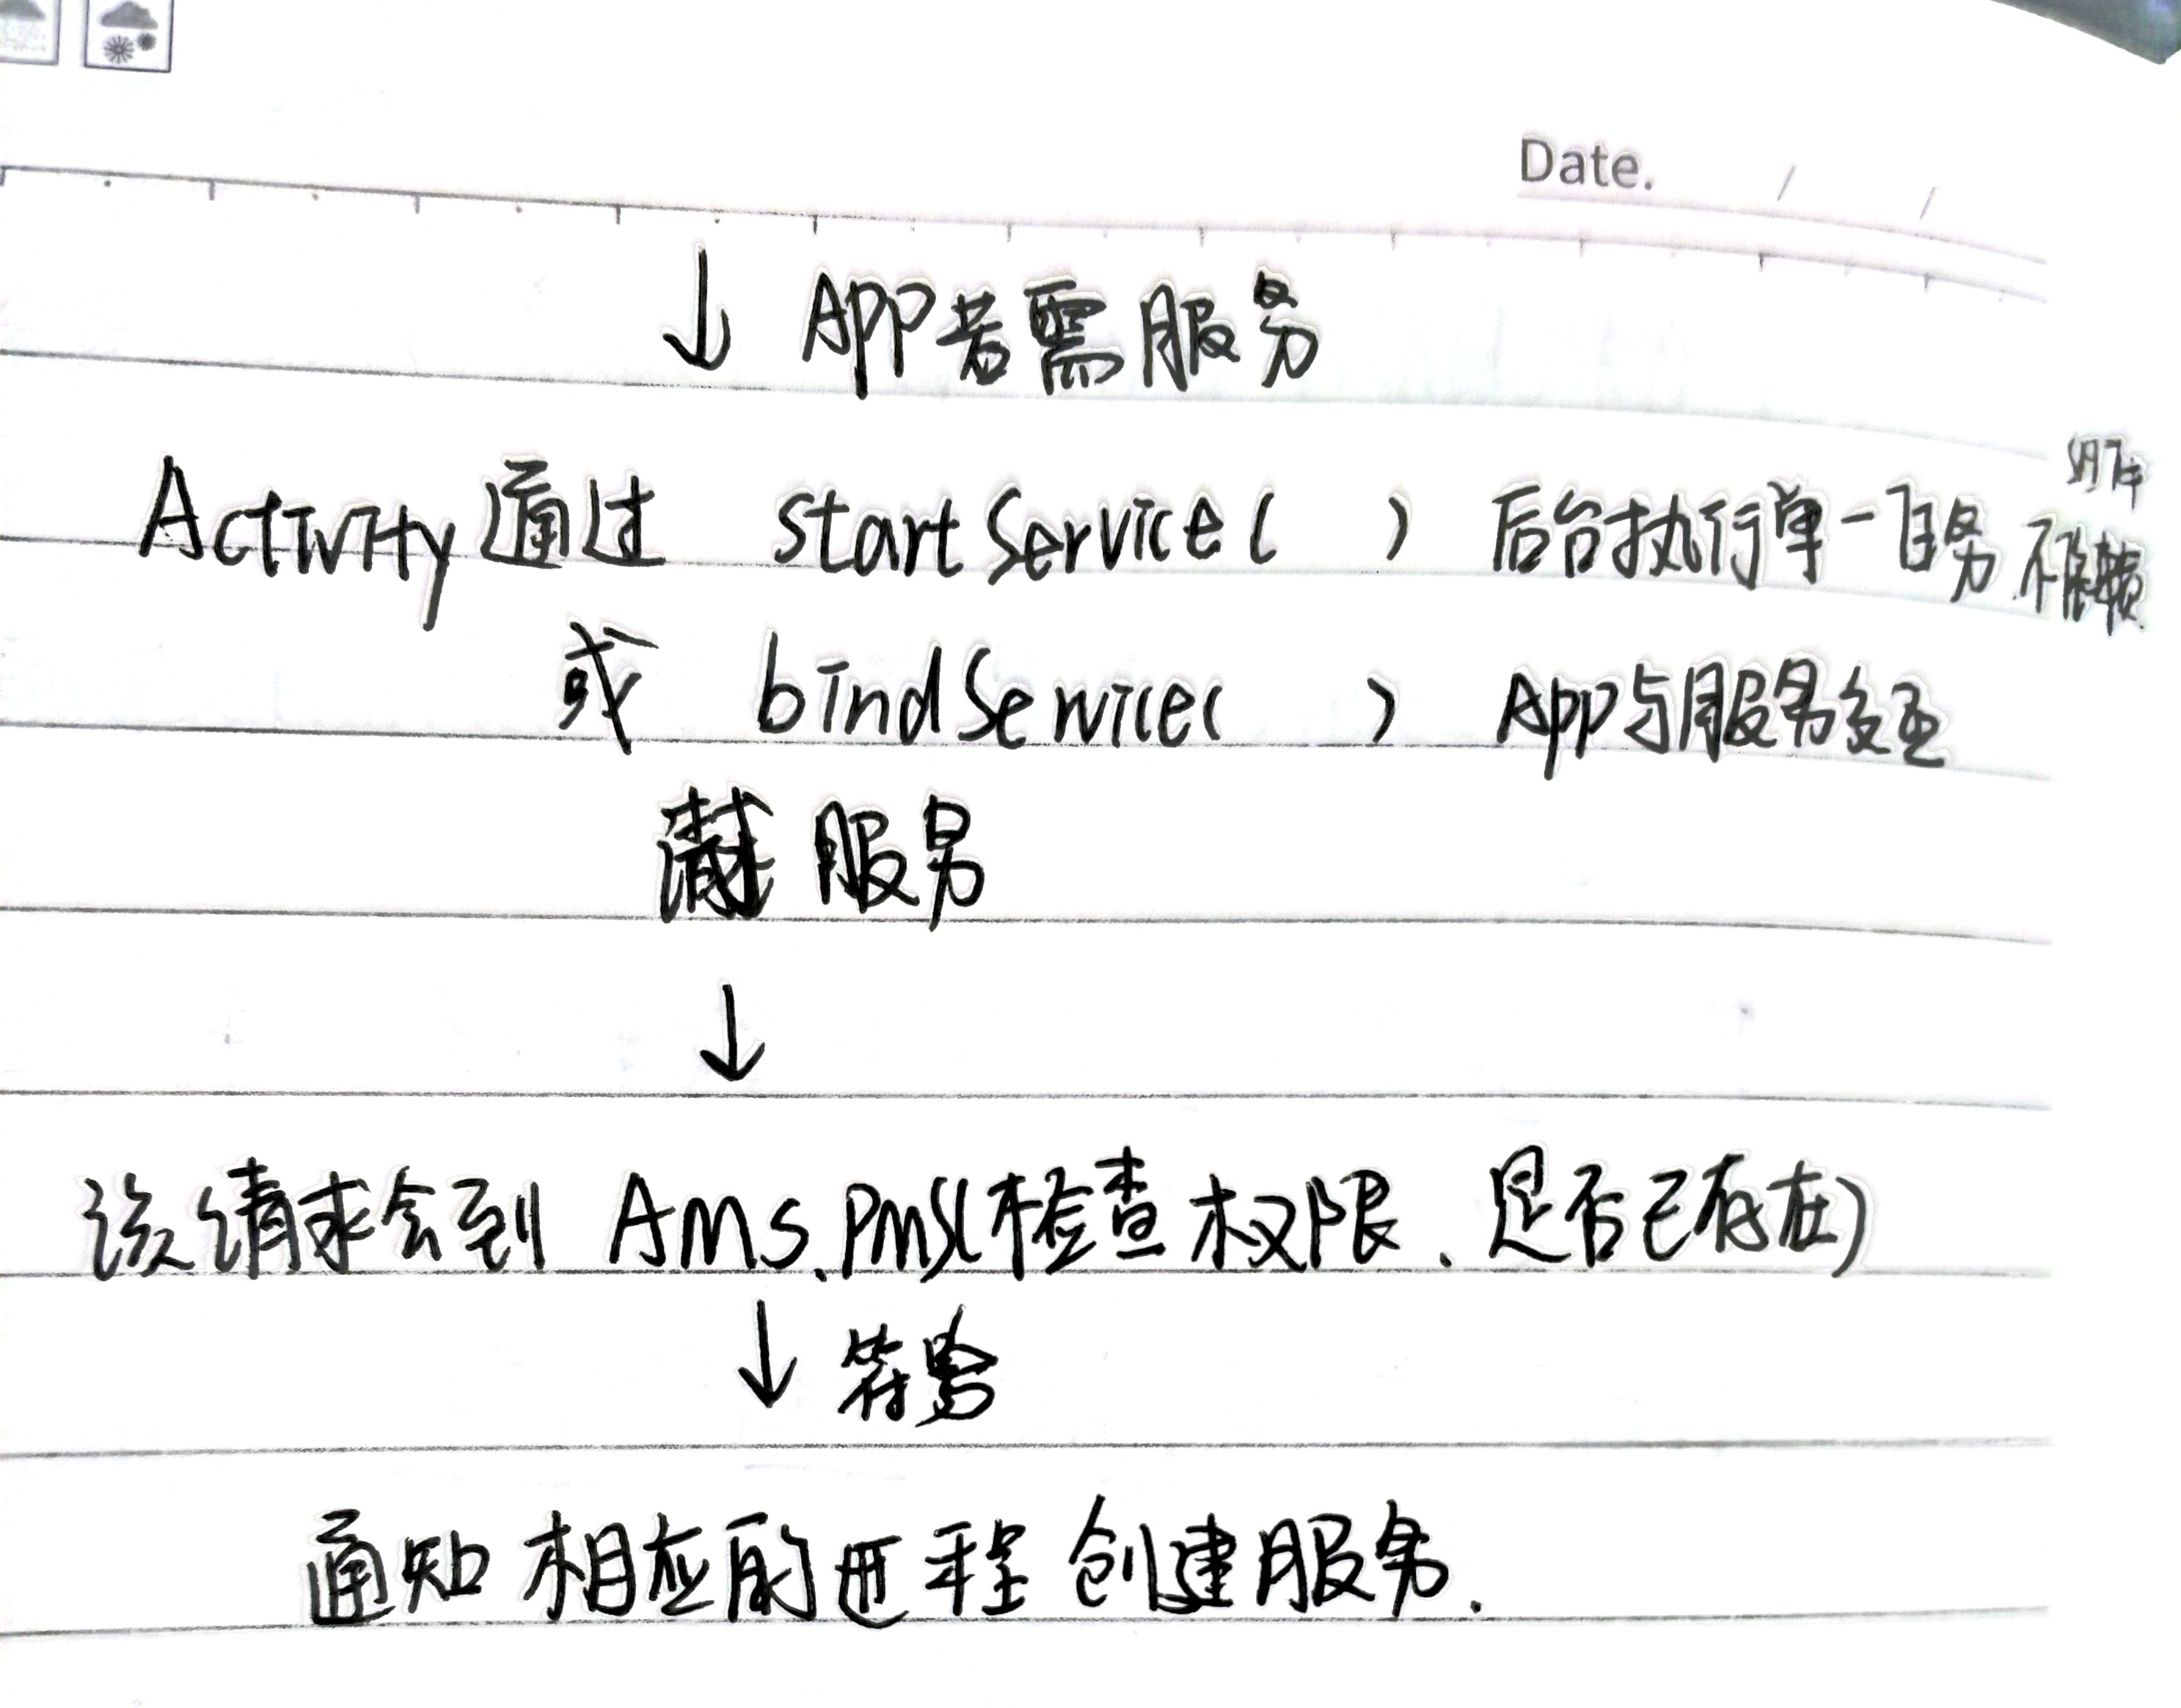 Date. / /
↓ APP若需服务
Activity 通过 startService( ) 后台执行单一任务 组件
不依赖
或 bindService( ) App与服务交互
请求 服务
↓
该请求会到 AMS、PMS(检查权限、是否已存在)
↓ 符合
通知 相应的进程 创建服务.